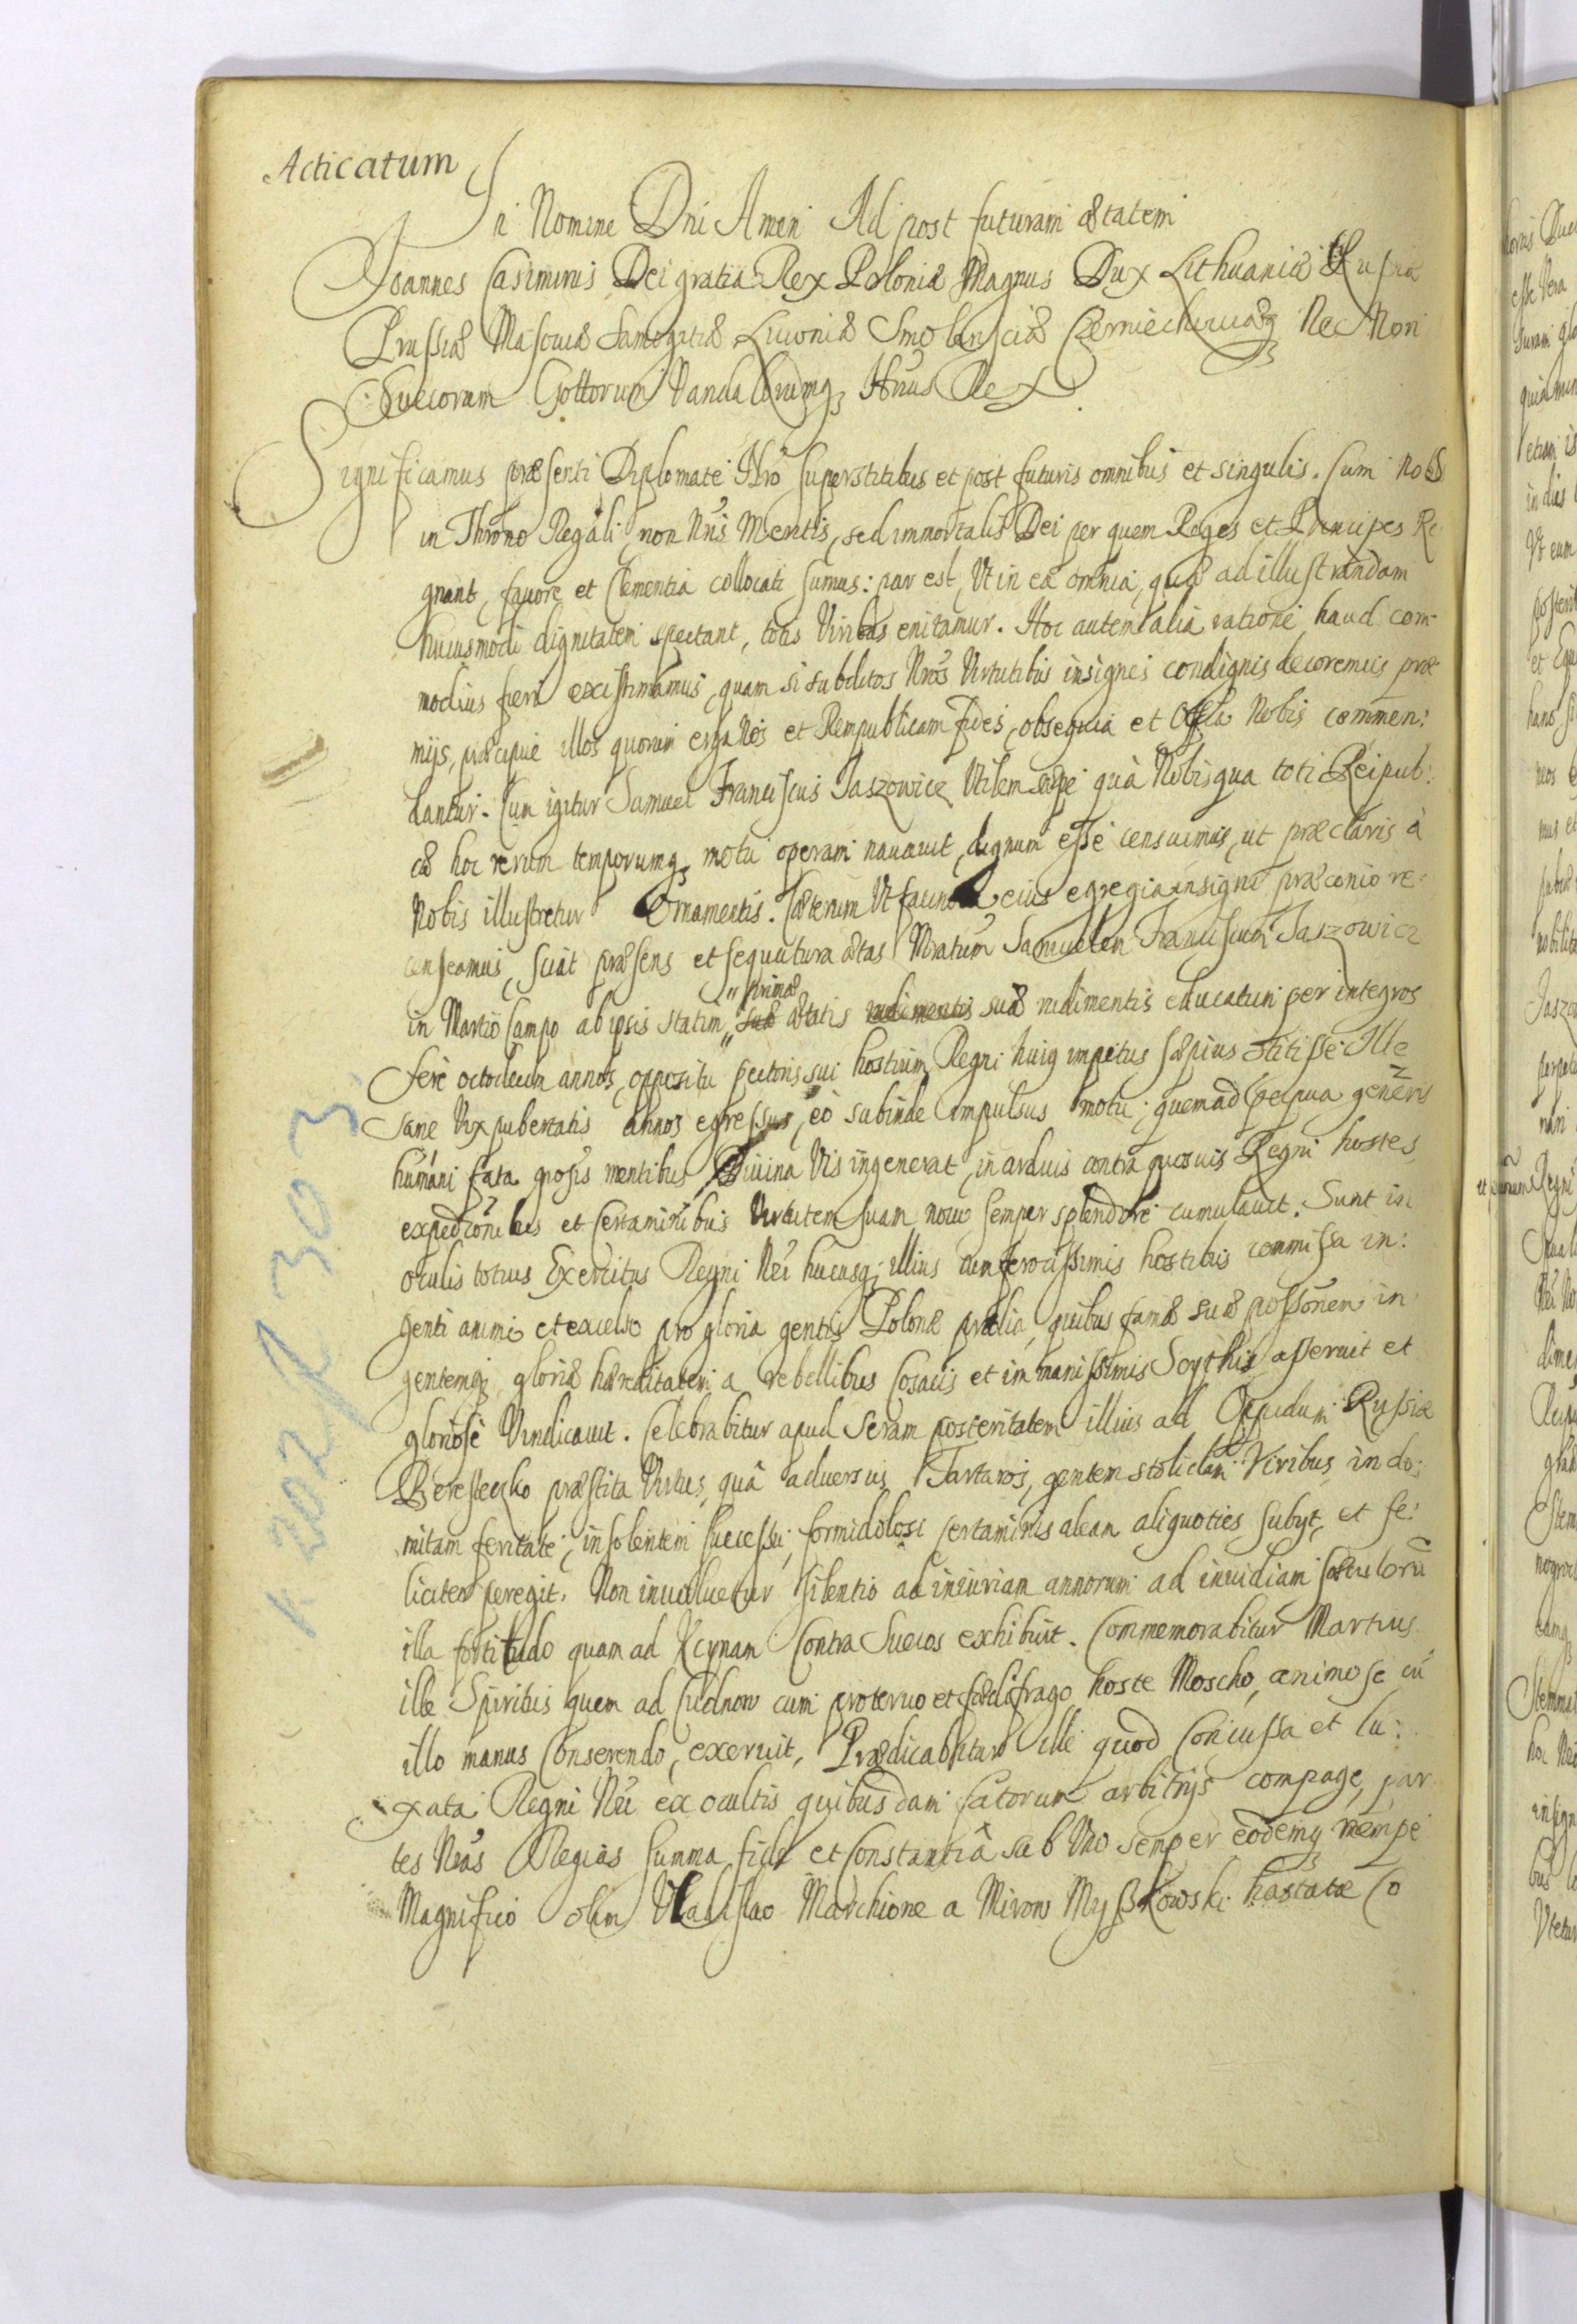 Acticatum
In Nomine Dni Amen Ad post futuram ætatem
Joannes Casimirus Dei gratia Rex Poloniæ Magnus Dux Lithuaniæ Russiæ
Prussiæ Masoviæ Samogitiæ Livoniæ Smolensciæ Czerniechoviæq Nec Non
Suecorum Gottorum Vandalorumq Hrius Rex
Significamus præsenti Diplomate Nro superstitibus et post futuris omnibus et singulis. Cum nos
in Throno Regali, non Nris Meritis, sed immortalis Dei per quem Reges et Principes Re
gnant, favore et Clementia collocati sumus: par est, Ut in ea omnia, quæ ad illustrandam
huiusmodi dignitatem spectant, totis Viribus enitamur. Hoc autem alia ratione haud com-
modius fieri existimamus, quam si subditos Nros Virtutibus insignes condignis decoremus præ
mijs, præcipue illos quorum erga Nos et Rempublicam fides, obsequia et Offa Nobis commen:
dantur. Cum igitur Samuel Franciscus Jaszowicz Utilem sæpe quà Nobis qua toti Reipub:
cæ hoc rerum temporumq motu operam navavit, dignum esse censuimus, ut præclaris à
Nobis illustretur Ornamentis. Cæterum Ut facinora eius egregia insigni præconio re:
censeamus, sciat præsens et sequutura ætas Natum Samuelem Franciscum Jaszowicz
in Martio Campo ab ipsis statim „ suæ ætatis rudimentis suæ rudimentis educatum per integros
„ primæ
fere octodecim annos, oppositu pectoris sui hostium Regni huiq impetus sæpius stitisse. Ille
sane Vix pubertatis annos egressus, eò subinde impulsus motu, quem ad perpua generis
humani fata grosis mentibus Divina Vis ingenerat, in arduis contra quosvis Regni hostes,
expedronibus et Certaminibus Virtutem suam novo semper splendore cumulavit. Sunt in
oculis totius Exercitus Regni Nri hucusq illius cum ferocissimis hostibus commissa in:
genti animo et excelso pro gloria gentis Polonæ prælia, quibus famæ suæ possonem in
gentemq gloriæ hæreditatem a rebellibus Cosacis et immanissimis Scythis asseruit et
gloriose Vindicavit. Celebrabitur apud seram posteritatem illius ad Oppidum Russiæ
Beresteczko præstita Virtus, quâ adversus Tartaros, gentem stolidam Viribus indo:
mitam feritate, insolentem successu, formidolosi certaminis aleam aliquoties subyt, et fe:
liciter peregit. Non involvetur silentio ad iniuriam annorum ad invidiam sæculorū
illa fortitudo quam ad Kcynam Contra Suecos exhibuit. Commemorabitur Martius
ille Spiritus quem ad Cudnow cum protervo et fædifrago hoste Moscho, animose cū
illo manus Conserendo, exeruit, Prædicabitur ille quod Concussa et lu:
xata Regni Nri ex ocultis quibusdam fatorum arbitrijs compage, par
tes Nras Regias summa fide et Constantiâ sub Uno semper eodemq nempe
Magnifico olim Uladislao Marchione a Mirow Myßkowski hastatæ Co